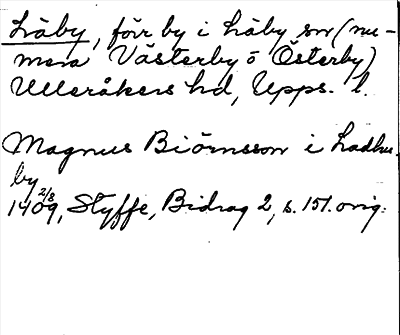 Läby, förr by i Läby sn (nu-
mera Västerby o Österby)
Ulleråkers hd, Upps. l.
Magnus Biörnsson i Ladhu-
by
2/8
1409, Styffe, Bidrag 2, s. 151. orig.